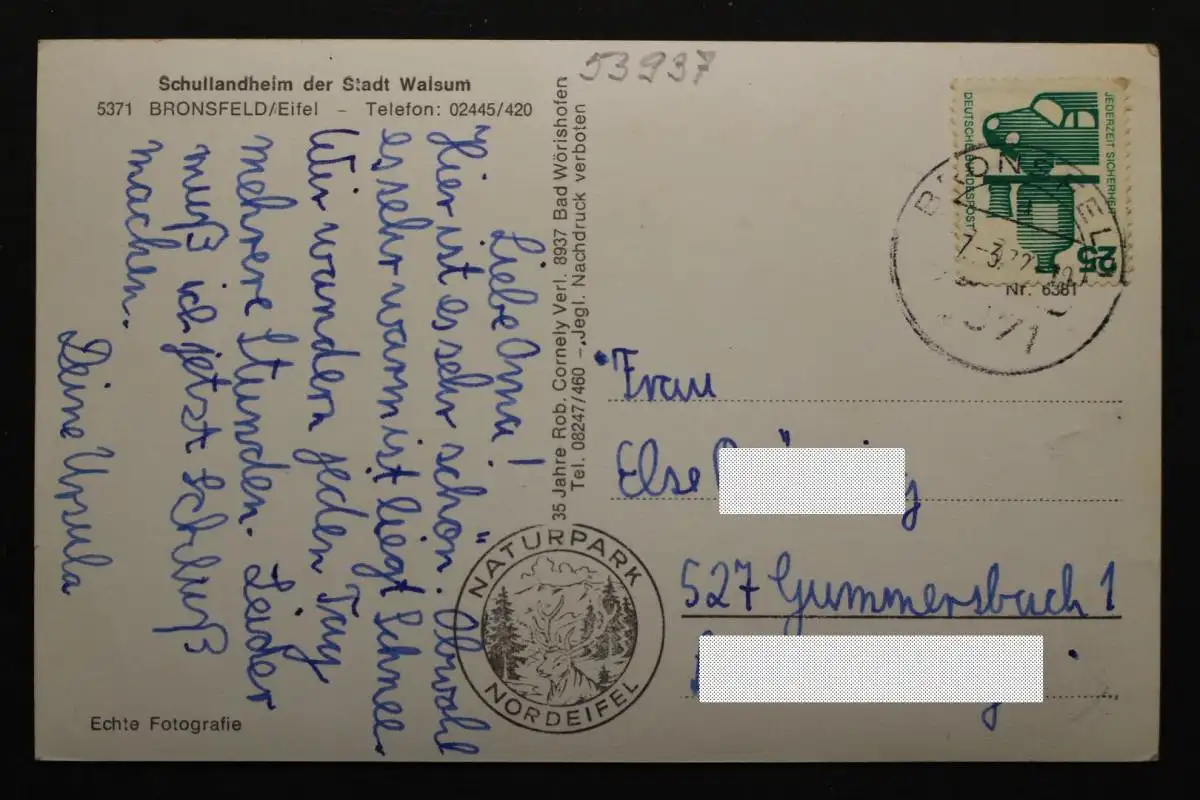 Schullandheim der Stadt Walsum
5371 BRONSFELD/Eifel – Telefon: 02445/420
Liebe Oma!
Hier ist es sehr schön. Obwohl
es sehr warm ist liegt Schnee
Wir wandern jeden Tag
mehrere Stunden. Leider
muß ich jetzt Schluß
machen.
Deine Ursula
Echte Fotografie
35 Jahre Rob. Cornely Verl. 8937 Bad Wörishofen
Tel. 08247/460 – Jegl. Nachdruck verboten
NATURPARK
NORDEIFEL
53937
DEUTSCHE BUNDESPOST
JEDERZEIT SICHERHEIT
25
Nr. 6381
Frau
Else
527 Gummersbach 1